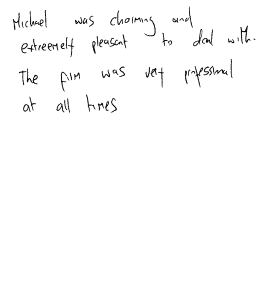 Michael was charming and
extremely pleasant to deal with.
The film was very professional
at all times